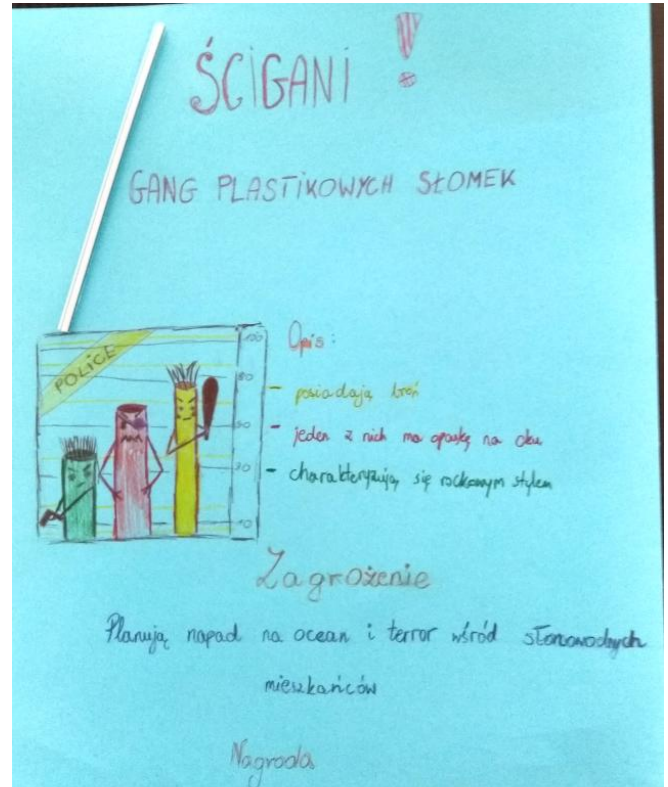 ŚCIGANI !
GANG PLASTIKOWYCH SŁOMEK
POLICE
100
80
50
30
10
Opis:
- posiadają broń
- jeden z nich ma opaskę na oku
- charakteryzują się rockowym stylem
Zagrożenie
Planują napad na ocean i terror wśród słonowodnych
mieszkańców
Nagroda